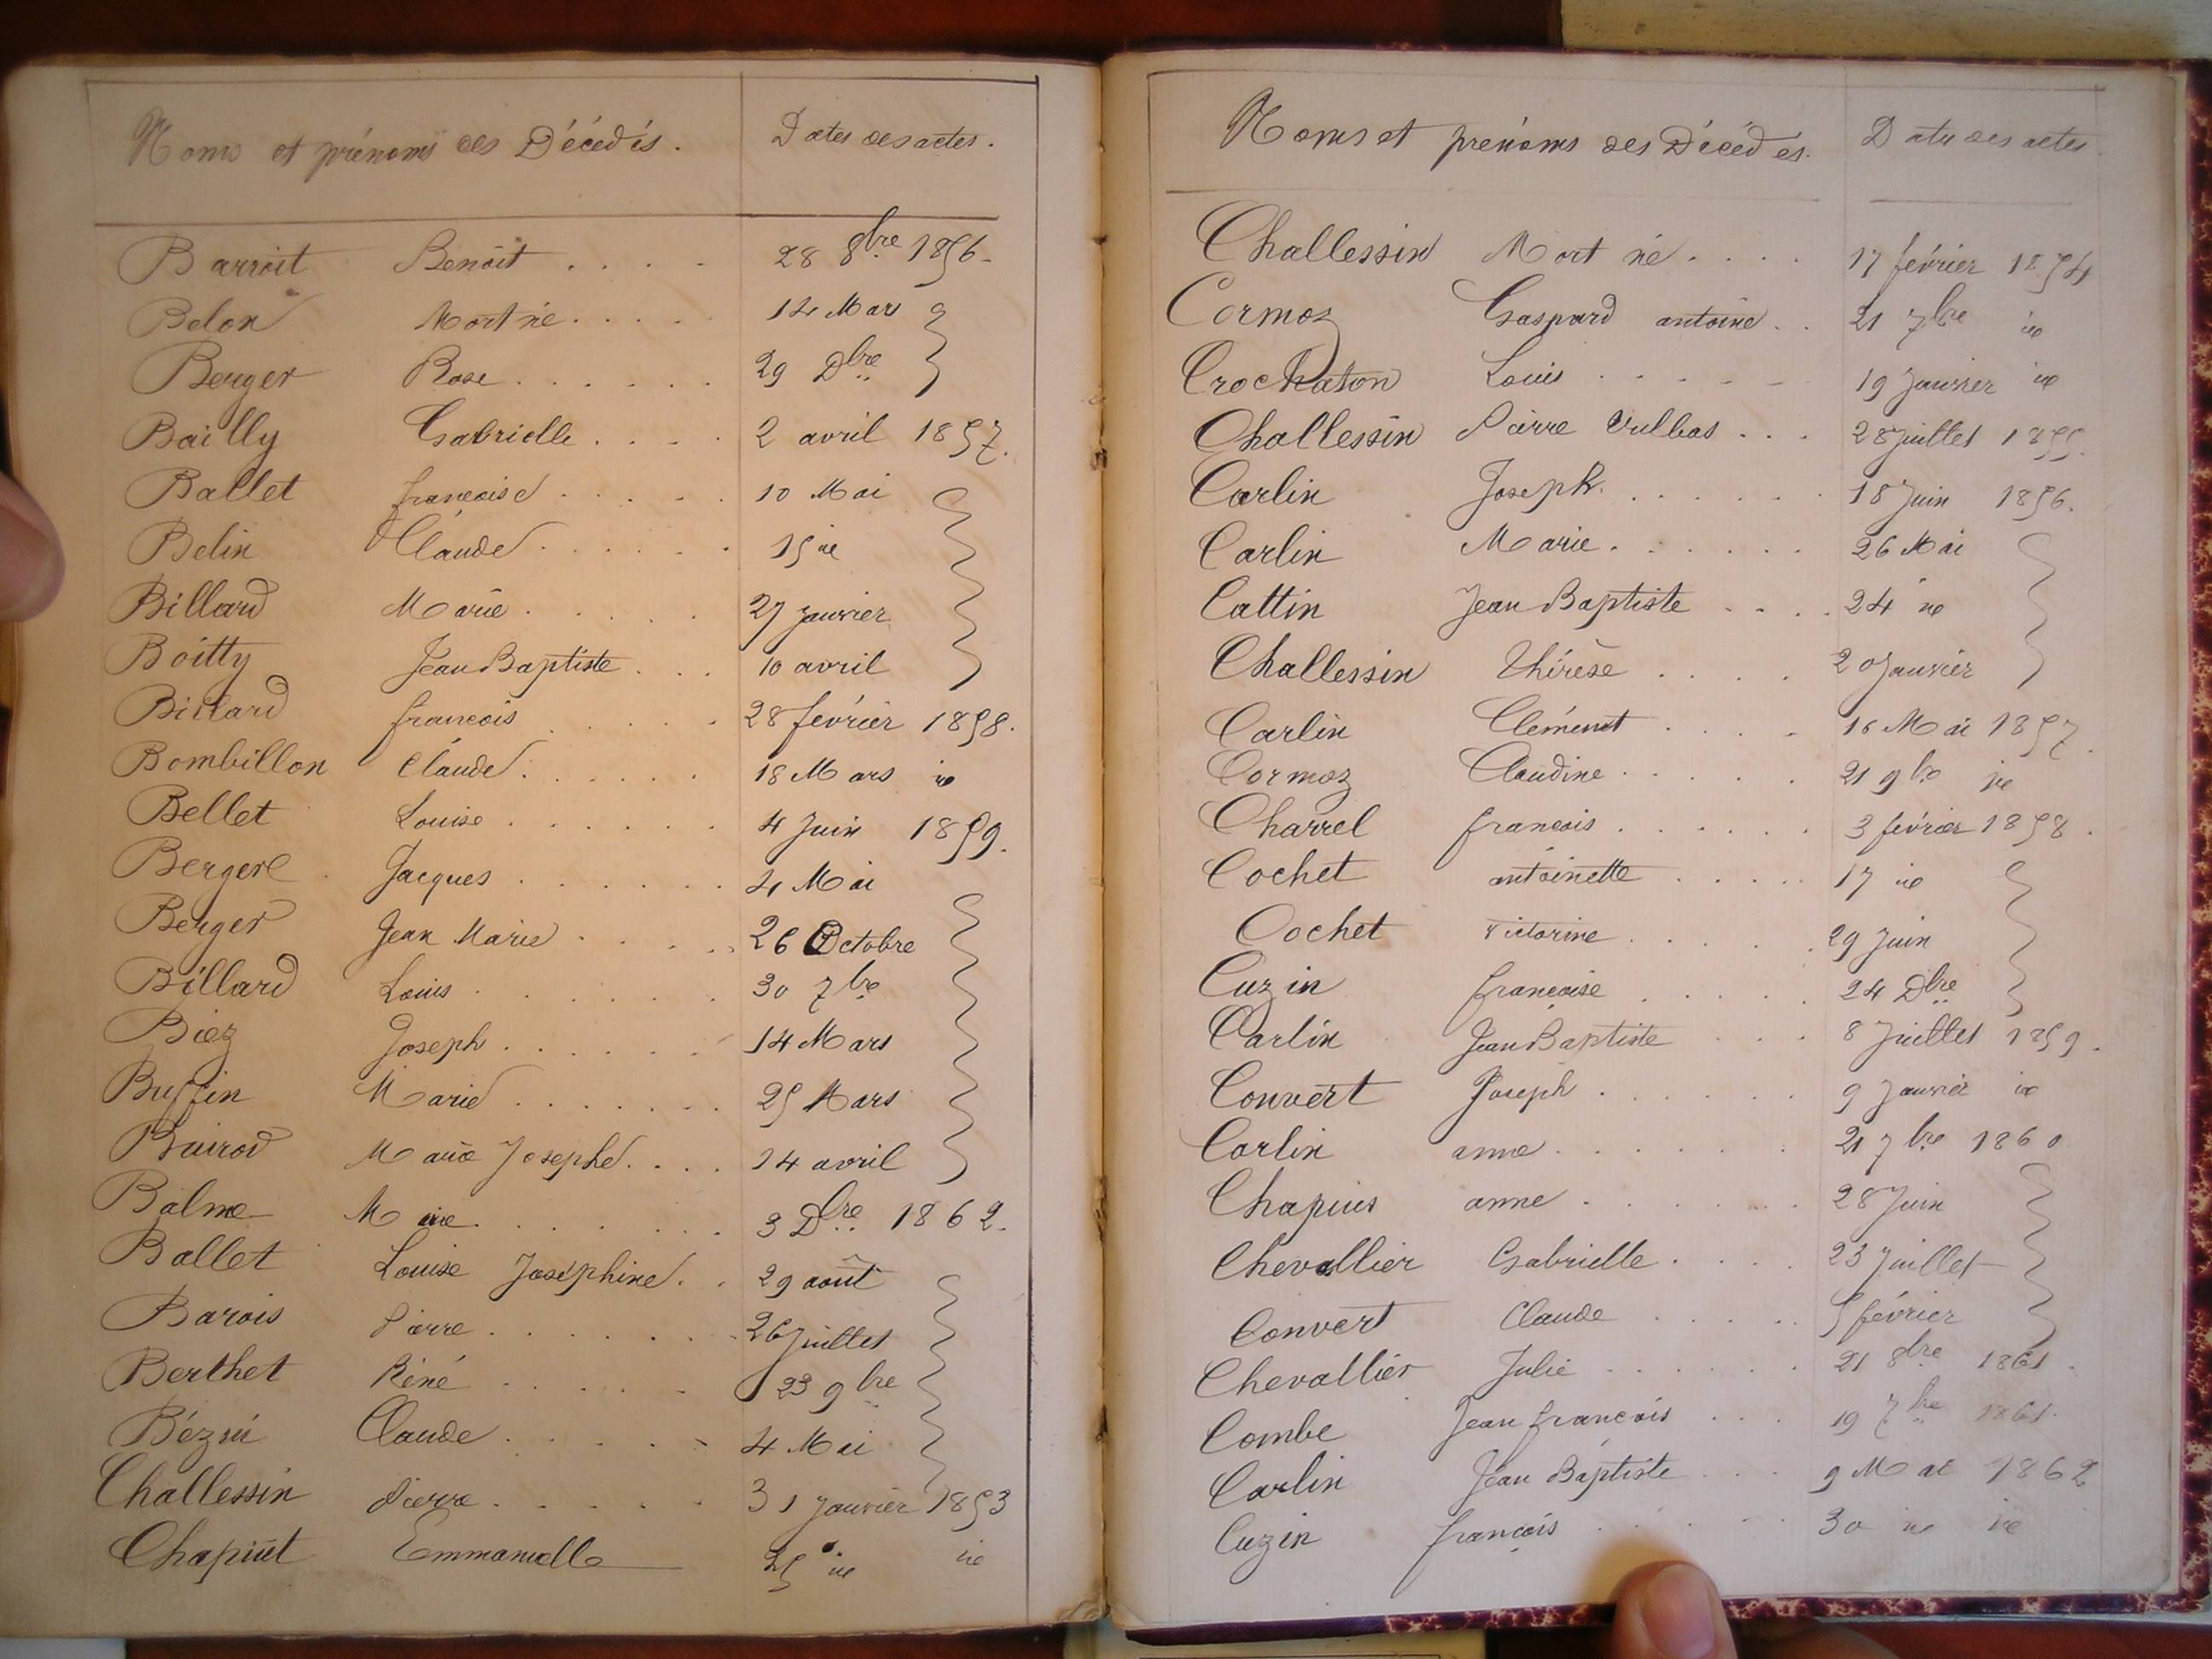 Noms et prénoms des Décédés. Dates des actes.
Barroit Benoît 28 8bre 1856.
Belon Mort né 14 Mars
Berger Rose 29 Dbre
Bailly Gabrielle 2 avril 1857.
Ballet françoise 10 Mai
Belin Claude 15 id
Billard Marie 27 janvier
Boitty Jean Baptiste 10 avril
Billard françois 28 février 1858.
Bombillon Claude 18 Mars id
Bellet Louise 4 Juin 1859.
Berger Jacques 4 Mai
Berger Jean Marie 26 Octobre
Billard Louis 30 7bre
Biez Joseph 14 Mars
Buffin Marie 25 Mars
Buirod Marie Josephe 14 avril
Balme Marie 3 Dbre 1862.
Ballet Louise Joséphine 29 août
Barois Pierre 26 juillet
Berthet Réné 23 9bre
Claude 4 Mai
Challessin Pierre 31 janvier 1853
Chapuit Emmanuelle 25 id id
Noms et prénoms des Décédés. Dates des actes.
Challessin Mort né 17 février 1854
Cormoz Gaspard antoine 21 7bre id
Crochaton Louis 19 Janvier id
Challessin Pierre Vulbas 28 juillet 1855.
Carlin Joseph 18 Juin 1856.
Carlin Marie 26 Mai
Cattin Jean Baptiste 24 id
Challessin Thérèse 20 Janvier
Carlin Clément 16 Mai 1857.
Cormoz Claudine 21 9bre id
Charrel françois 3 février 1858.
Cochet antoinette 17 id
Cochet Victorine 29 Juin
Cuzin françoise 24 Dbre
Carlin Jean Baptiste 8 Juillet 1859.
Convert Joseph 9 Janvier id
Carlin anne 21 7bre 1860
Chapuis anne 28 Juin
Chevallier Gabrielle 23 Juillet
Convert Claude 5 février
Chevallier Julie 21 8bre 1861.
Combe Jean françois 19 7bre 1861.
Carlin Jean Baptiste 9 Mai 1862
Cuzin françois 30 id id